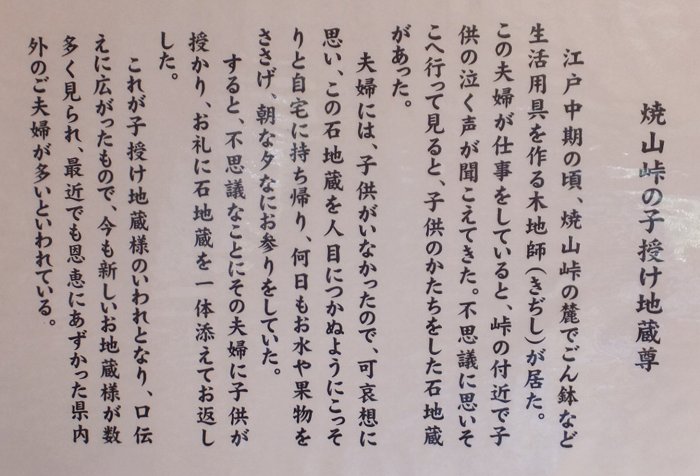 焼山峠の子授け地蔵尊
江戸中期の頃、焼山峠の麓でごん鉢など
生活用具を作る木地師(きぢし)が居た。
この夫婦が仕事をしていると、峠の付近で子
供の泣く声が聞こえてきた。不思議に思いそ
こへ行って見ると、子供のかたちをした石地蔵
があった。
夫婦には、子供がいなかったので、可哀想に
思い、この石地蔵を人目につかぬようにこっそ
りと自宅に持ち帰り、何日もお水や果物を
ささげ、朝な夕なにお参りをしていた。
すると、不思議なことにその夫婦に子供が
授かり、お礼に石地蔵を一体添えてお返し
した。
これが子授け地蔵様のいわれとなり、口伝
えに広がったもので、今も新しいお地蔵様が数
多く見られ、最近でも恩恵にあずかった県内
外のご夫婦が多いといわれている。